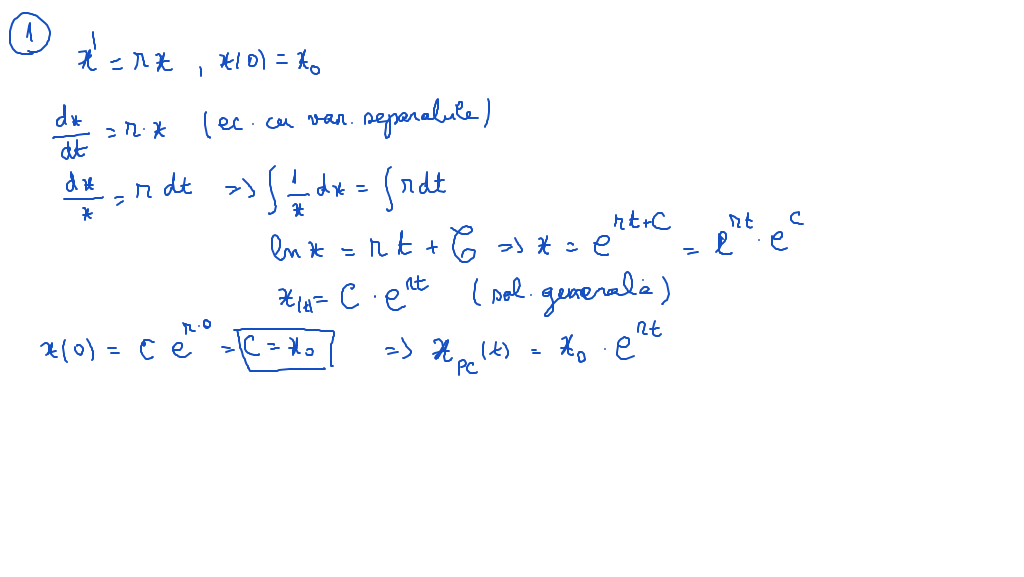 1
x' = rx , x(0) = x₀
dx/dt = r·x (ec. cu var. separabile)
dx/x = r dt => ∫ 1/x dx = ∫ r dt
ln x = r t + C => x = e^(rt+C) = e^(rt) · e^C
x(t) = C · e^(rt) (sol. generală)
x(0) = C e^(r·0) = C = x₀ => x_PC(t) = x₀ · e^(rt)